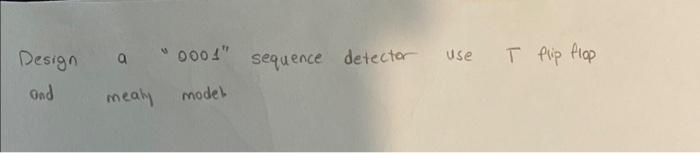 Design a "0001" sequence detector use T flip flop
and mealy model